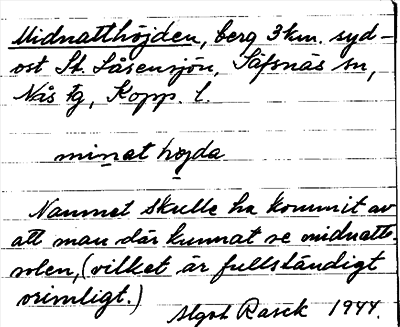 Midnatthöjden, berg 3 km. syd-
ost St. Låsensjön, Säfsnäs sn,
Nås tg, Kopp. l.
minat höjda
Namnet skulle ha kommit av
att man där kunnat se midnatts-
solen, (vilket är fullständigt
orimligt.)
Algot Rasck 1944.